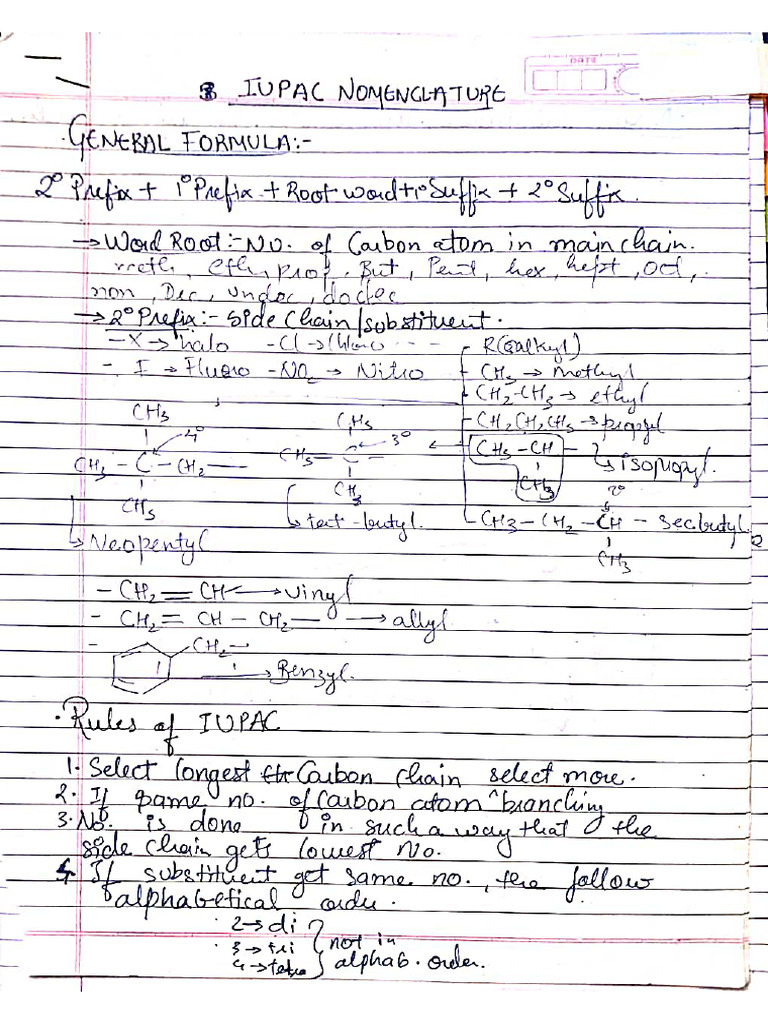 DATE
IUPAC NOMENCLATURE
· GENERAL FORMULA:-
2° Prefix + 1° Prefix + Root word + 1° Suffix + 2° Suffix.
→ Word Root:- No. of Carbon atom in main chain.
meth, eth, prop, But, Pent, hex, hept, Oct,
non, Dec, undec, dodec
→ 2° Prefix:- side chain/substituent.
- X → halo -Cl → Chloro --- - R(alkyl)
- I → Fluoro -NO2 → Nitro - CH3 → methyl
- CH2-CH3 → ethyl
CH3 CH3 - CH2CH2CH3 → propyl
4° 3° CH3 - CH -
CH3 - C - CH2 - CH3 - C - CH3 → isopropyl.
CH3 CH3 2°
→ tert-butyl. - CH3 - CH2 - CH - secbutyl
→ Neopentyl CH3
- CH2 = CH → vinyl
- CH2 = CH - CH2 - → allyl
- CH2 -
→ Benzyl.
· Rules of IUPAC
1. Select longest Carbon chain select more.
2. If same no. of Carbon atom ^ branching
3. No. is done in such a way that the
side chain gets lowest No.
4. If substituent get same no., the follow
alphabetical order.
· 2 → di
· 3 → tri not in
4 → tetra alphab. order.